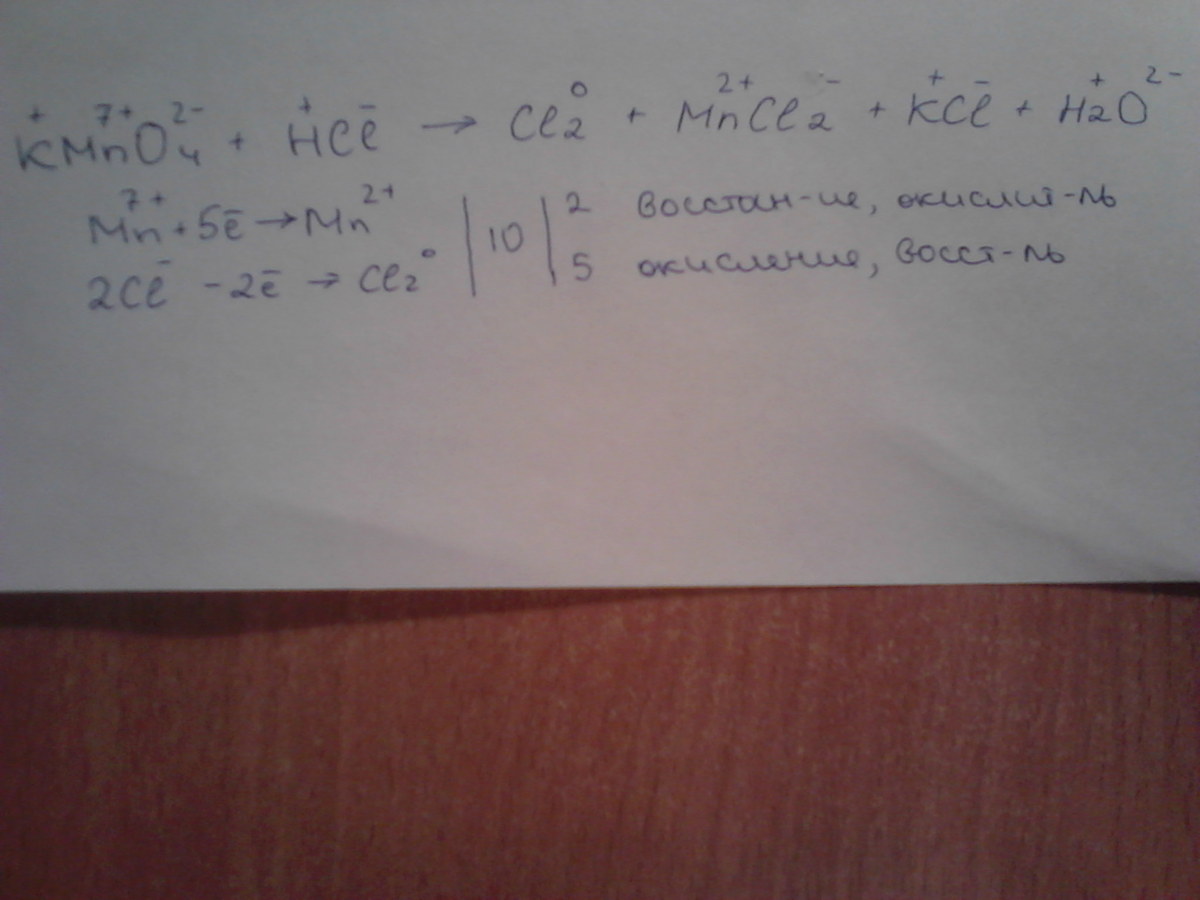 K⁺Mn⁷⁺O₄²⁻ + H⁺Cl⁻ → Cl₂⁰ + Mn²⁺Cl₂⁻ + K⁺Cl⁻ + H₂⁺O²⁻
Mn⁷⁺ + 5ē → Mn²⁺ | 10 | 2 восстан-ие, окислит-ль
2Cl⁻ - 2ē → Cl₂⁰ | | 5 окисление, восст-ль